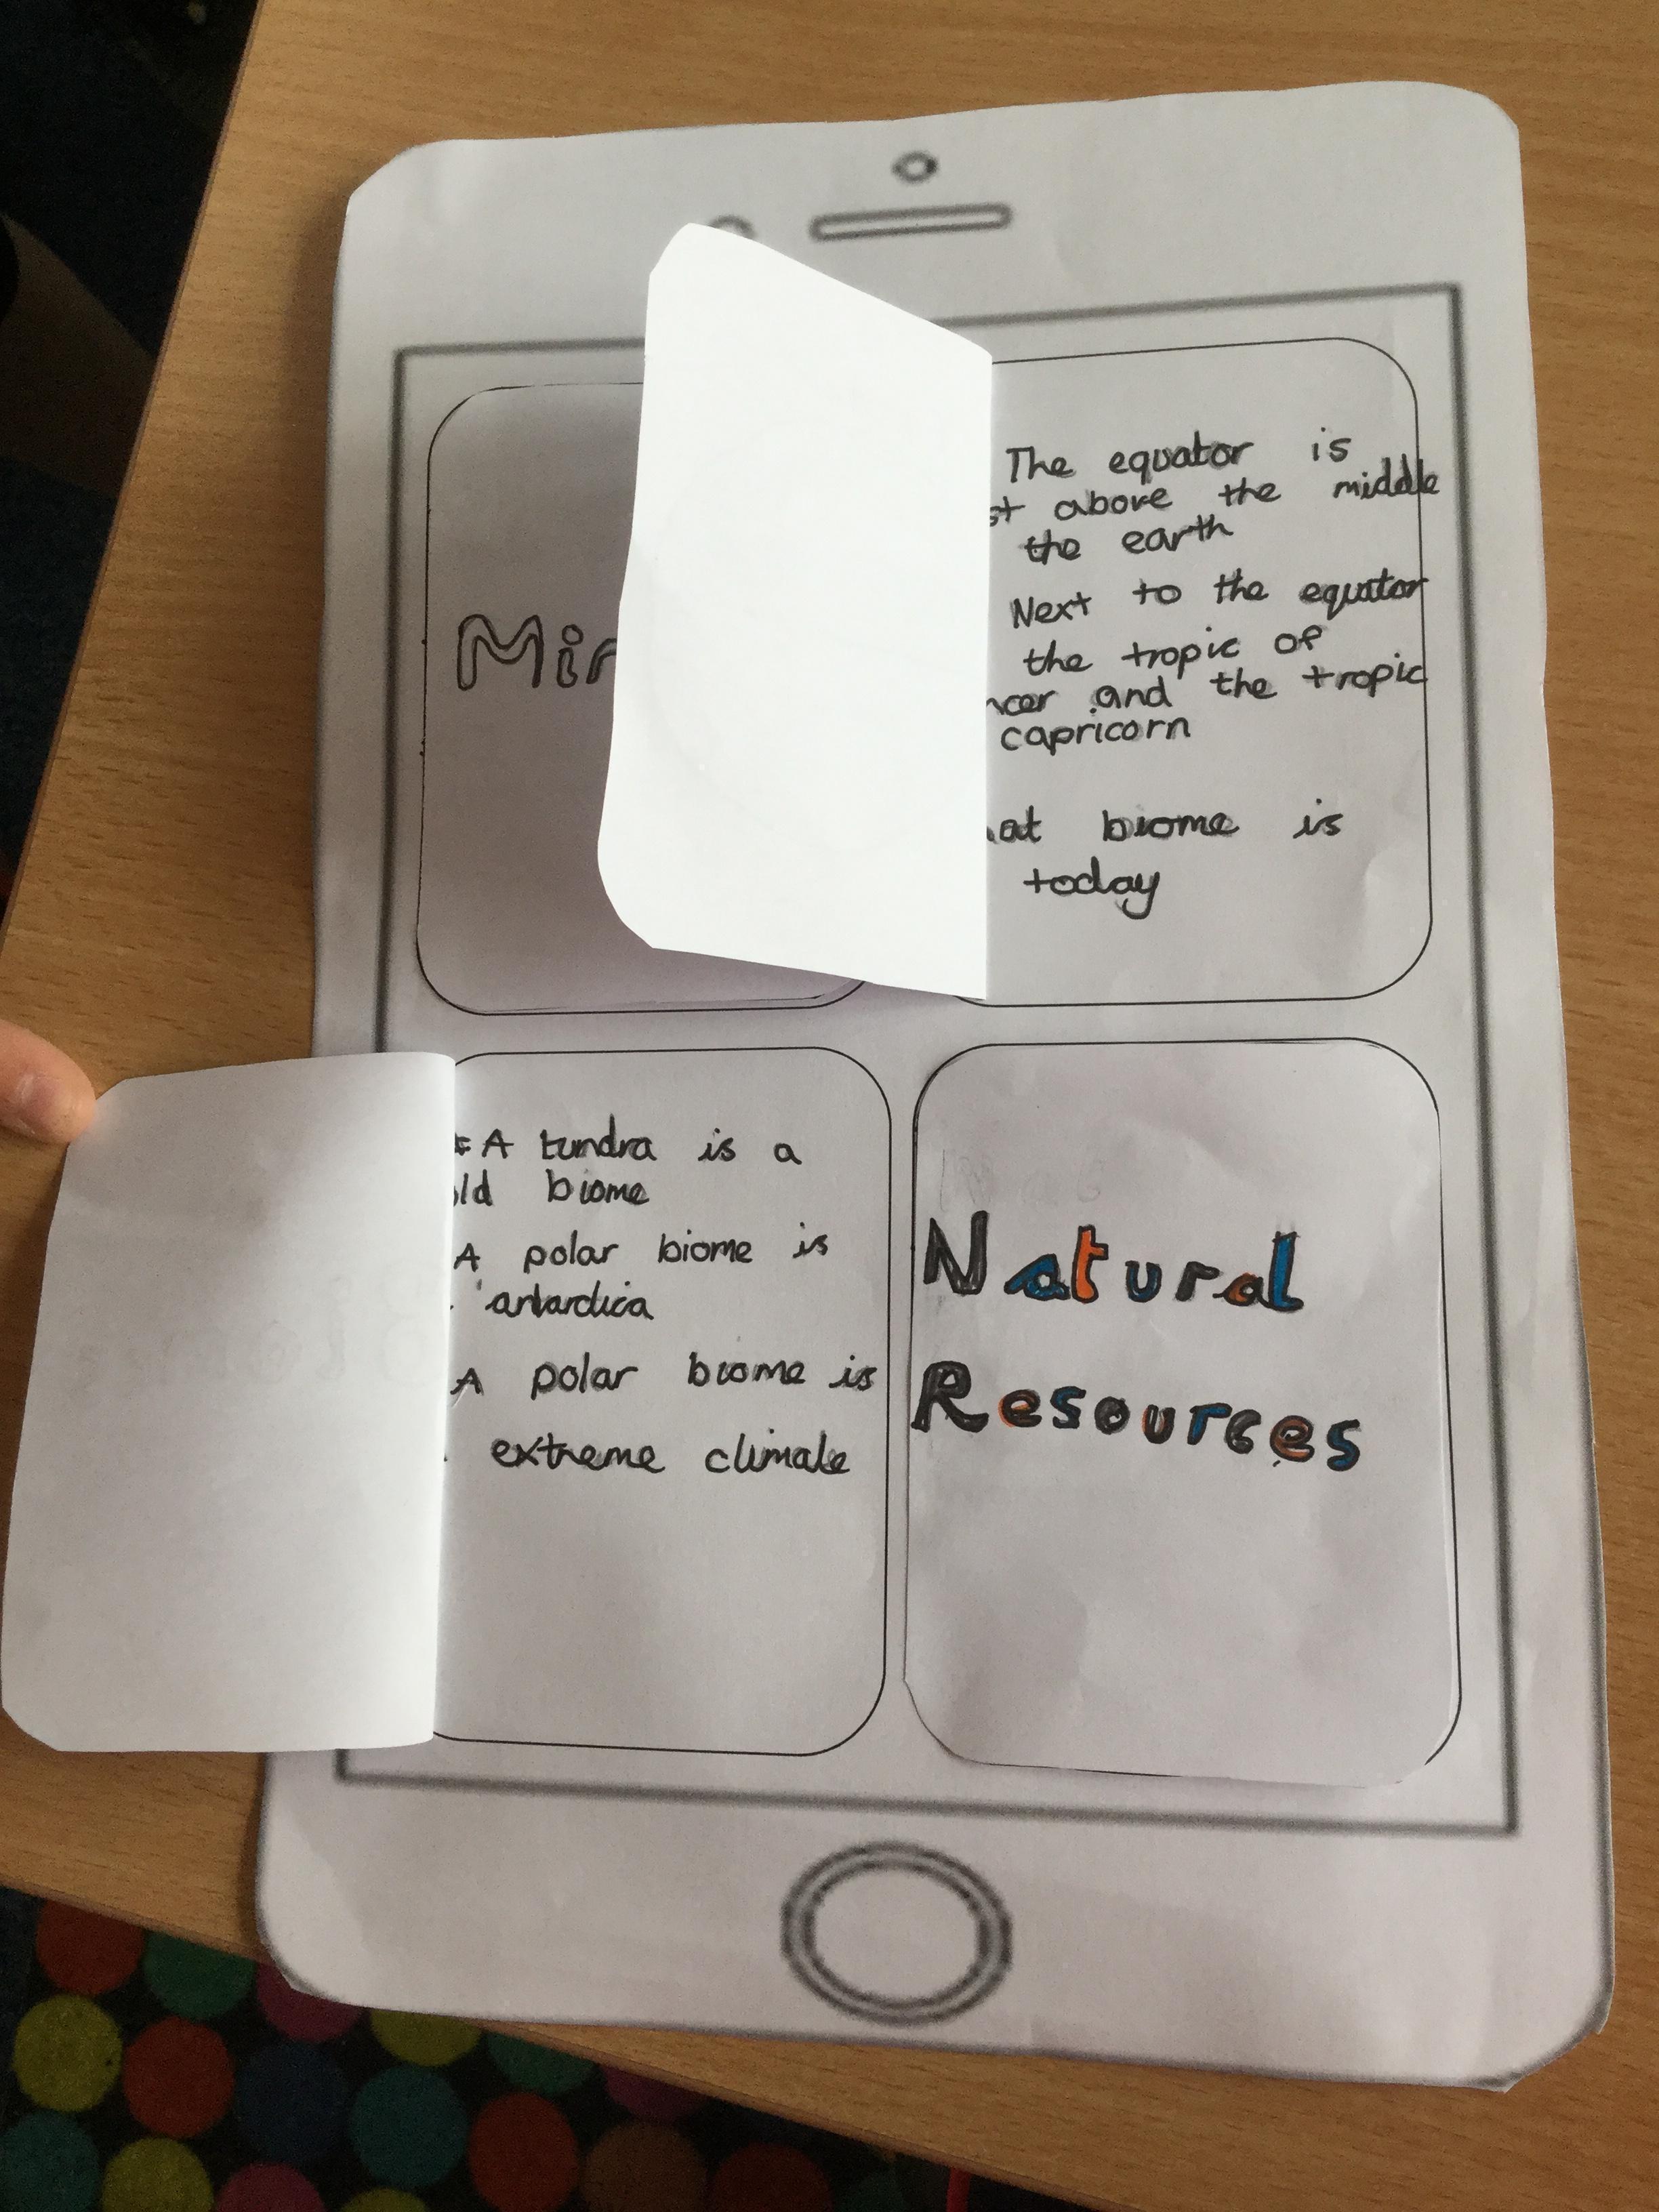 Min
The equator is
st above the middle
the earth
Next to the equator
the tropic of
ncer and the tropic
capricorn
at biome is
today
A tundra is a
old biome
A polar biome is
antardica
A polar biome is
extreme climate
Natural
Resources